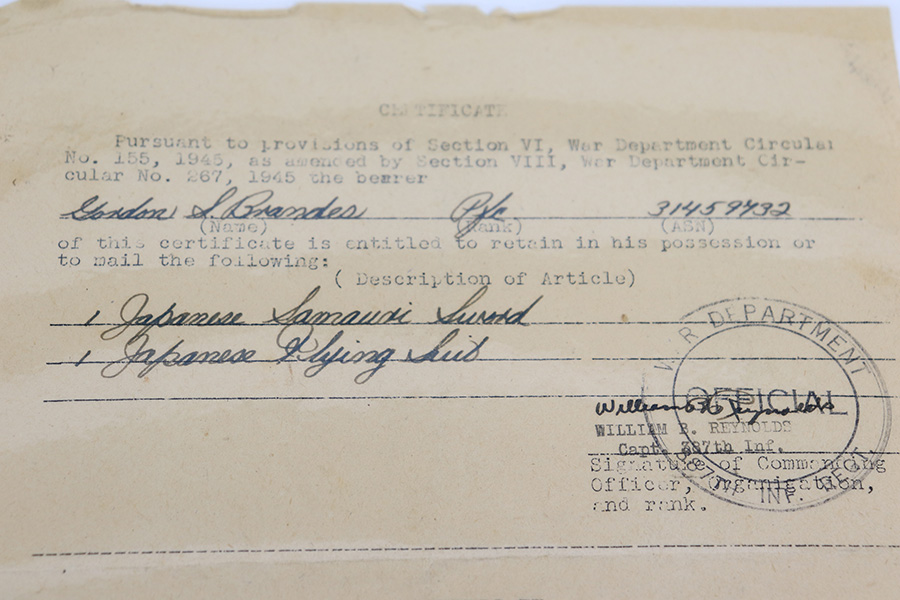 CERTIFICATE
Pursuant to provisions of Section VI, War Department Circular
No. 155, 1945, as amended by Section VIII, War Department Cir-
cular No. 267, 1945 the bearer
Gordon S. Brandes Pfc 31459732
(Name) (Rank) (ASN)
of this certificate is entitled to retain in his possession or
to mail the following:
( Description of Article)
1 Japanese Samauri Sword
1 Japanese Flying Suit
WAR DEPARTMENT
OFFICIAL
387TH INF. REGT.
William B. Reynolds
WILLIAM B. REYNOLDS
Capt. 387th Inf.
Signature of Commanding
Officer, Organization,
and rank.